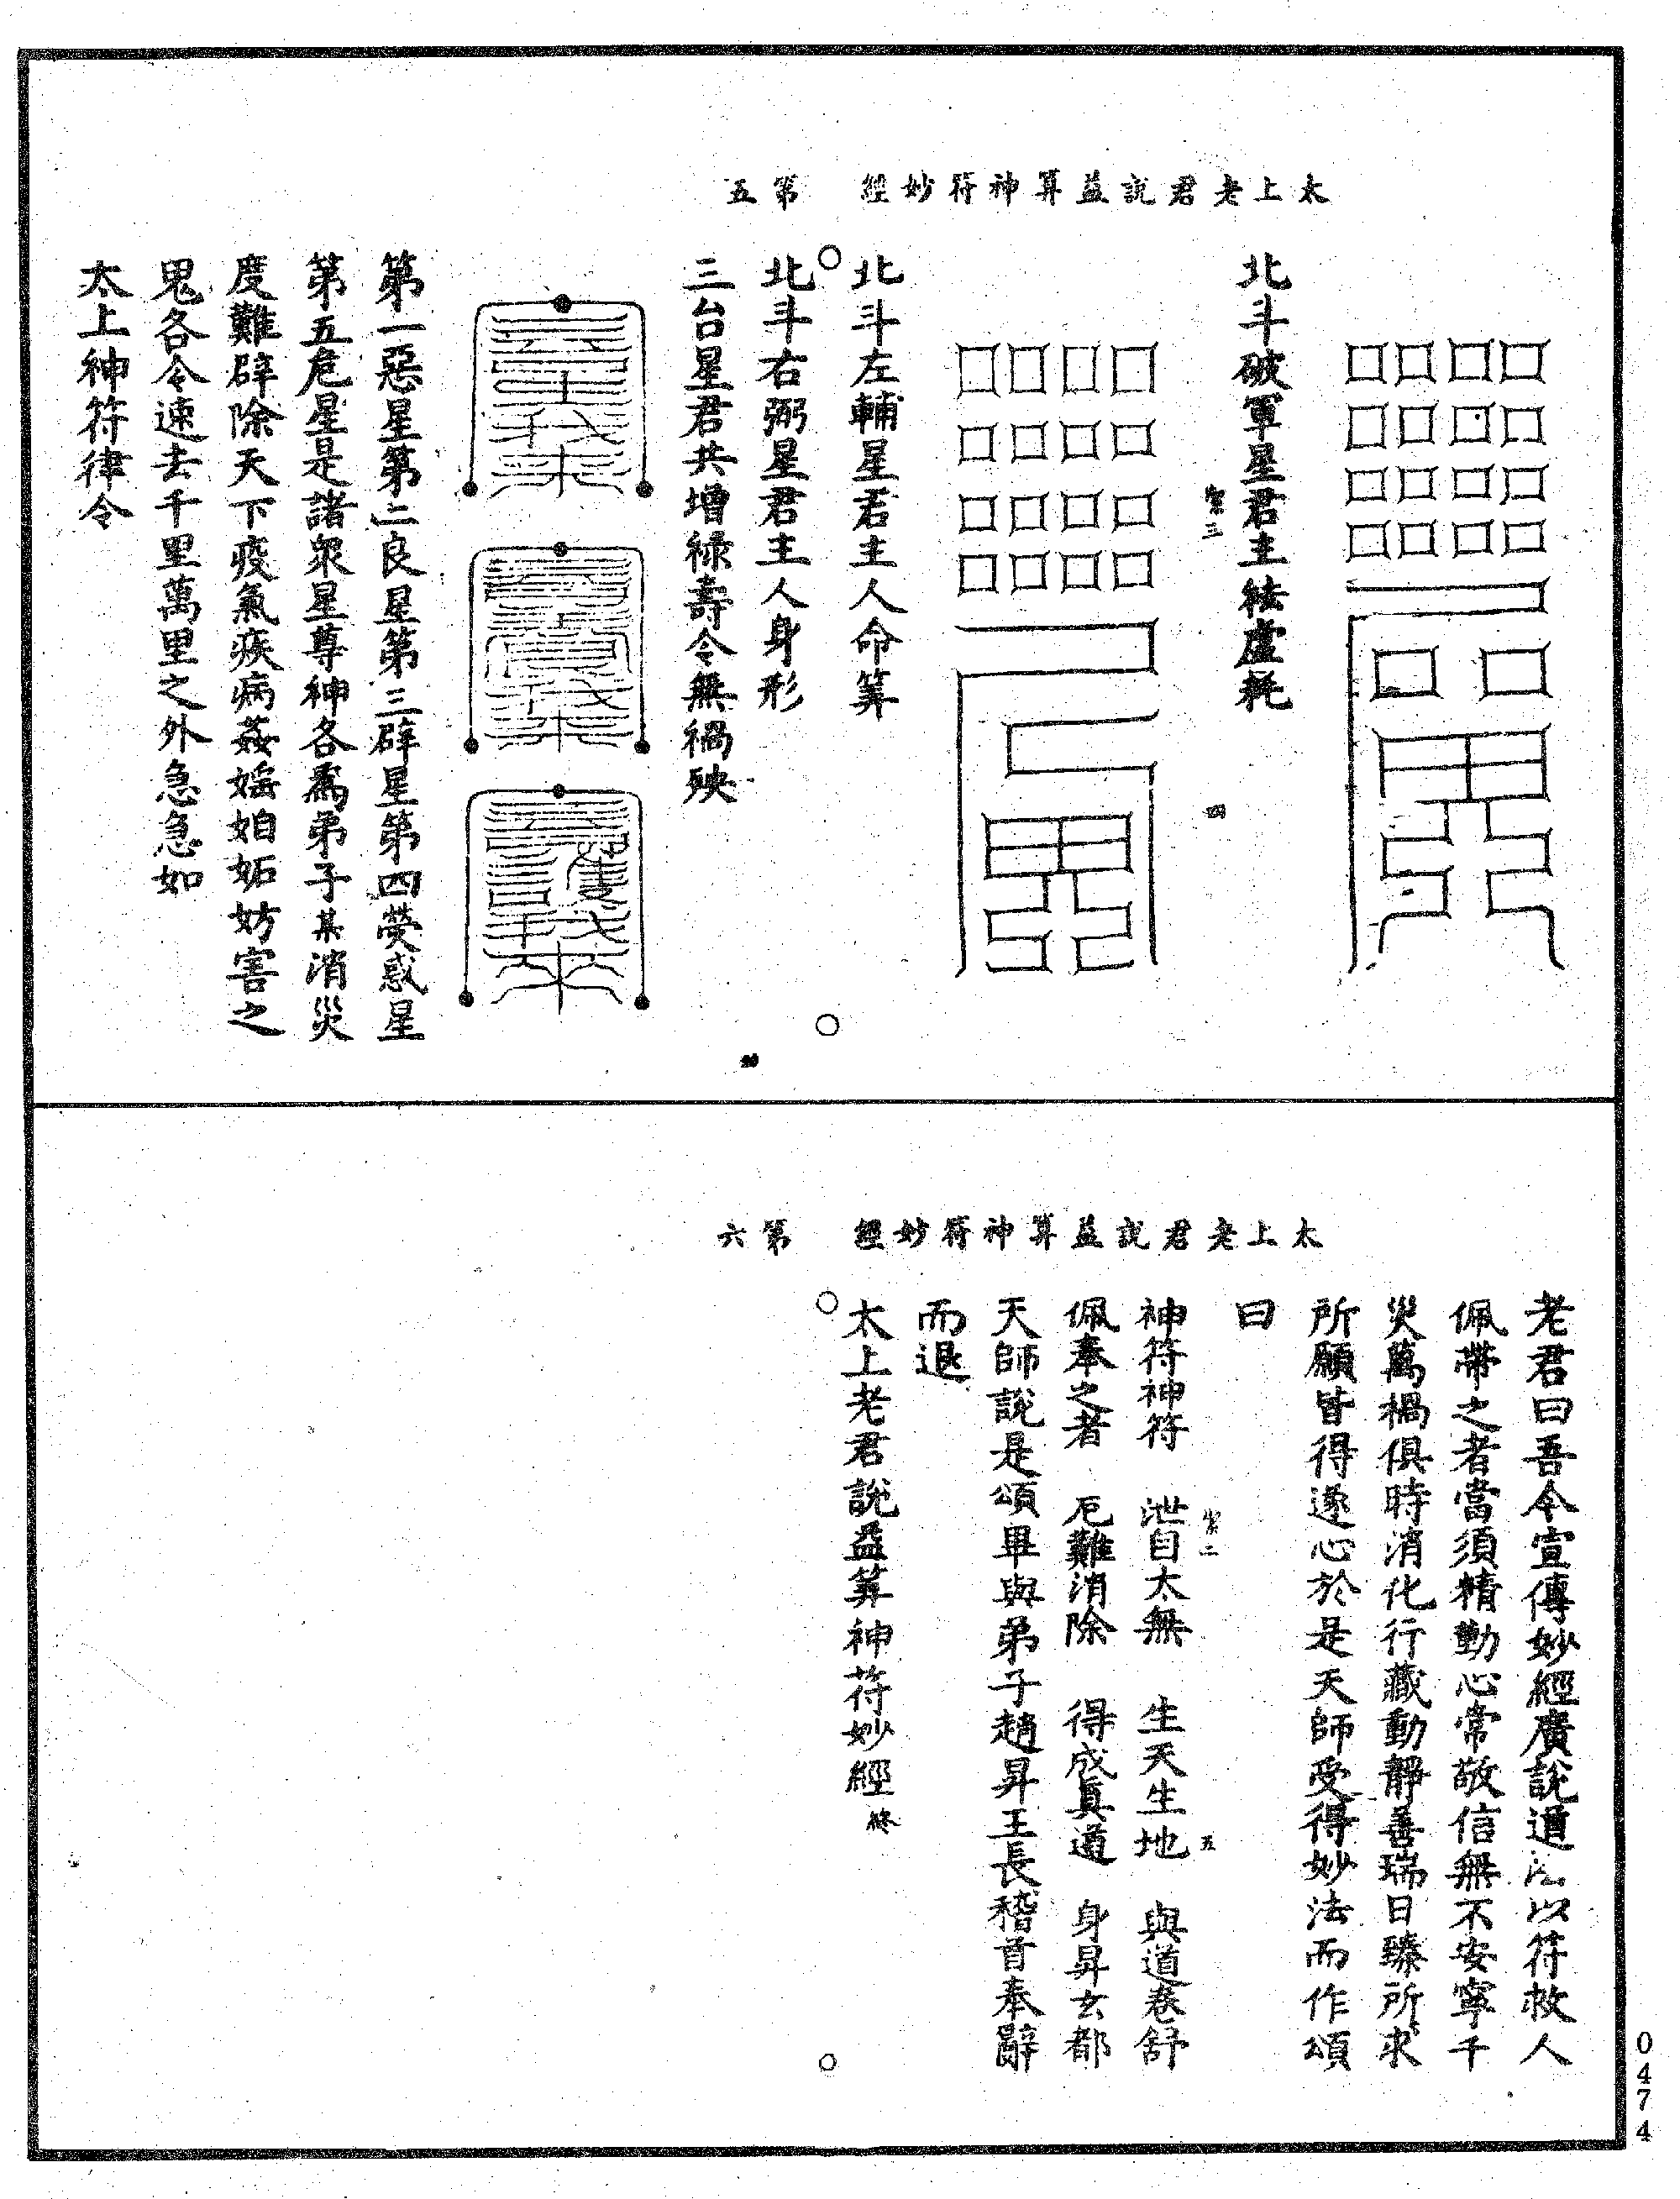 太上老君說益算神符妙經　第五
北斗破軍星君主祛虛耗
四
北斗左輔星君主人命筭
北斗右弼星君主人身形
三台星君共增祿壽令無禍殃
第一惡星第二良星第三辟星第四熒惑星
第五危星是諸衆星尊神各爲弟子某消災
度難辟除天下疫氣疾病姦婬妲妬妨害之
鬼各令速去千里萬里之外急急如
太上神符律令
太上老君說益算神符妙經　第六
老君曰吾今宣傳妙經廣說道法以符救人
佩帶之者當須精勤心常敬信無不安寧千
災萬禍俱時消化行藏動靜善瑞日臻所求
所願皆得遂心於是天師受得妙法而作頌
曰
五
神符神符　泄自太無　生天生地　與道卷舒
佩奉之者　厄難消除　得成真道　身昇玄都
天師說是頌畢與弟子趙昇王長稽首奉辭
而退
太上老君說益筭神符妙經 終
0474